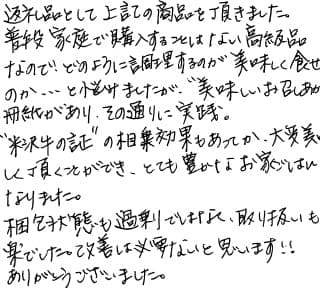 返礼品として上記の商品を頂きました。
普段家庭で購入することはない高級品
なので、どのように調理するのが美味しく食せ
るのか…と小説けましたが、"美味しいお召しあが
冊紙があり、その通りに実践。
"米沢牛の証"の相乗効果もあってか、大変美味
しく頂くことができ、とても豊かなお家ごはんに
なりました。
梱包状態も過剰でなく、取り扱いも
楽でした。改善は必要ないと思います!!
ありがとうございました。